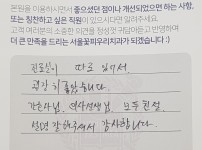 본원을 이용하시면서 좋으셨던 점이나 개선되었으면 하는 사항,
또는 칭찬하고 싶은 직원이 있으시다면 알려주세요.
고객 여러분의 소중한 의견을 정성껏 귀담아듣고 반영하여
더 큰 만족을 드리는 서울꽃파우리치과가 되겠습니다 :)
진료실이 따로 있어서
굉장히 좋았습니다
간호사님, 의사선생님, 모두 친절
설명 잘해주셔서 감사합니다